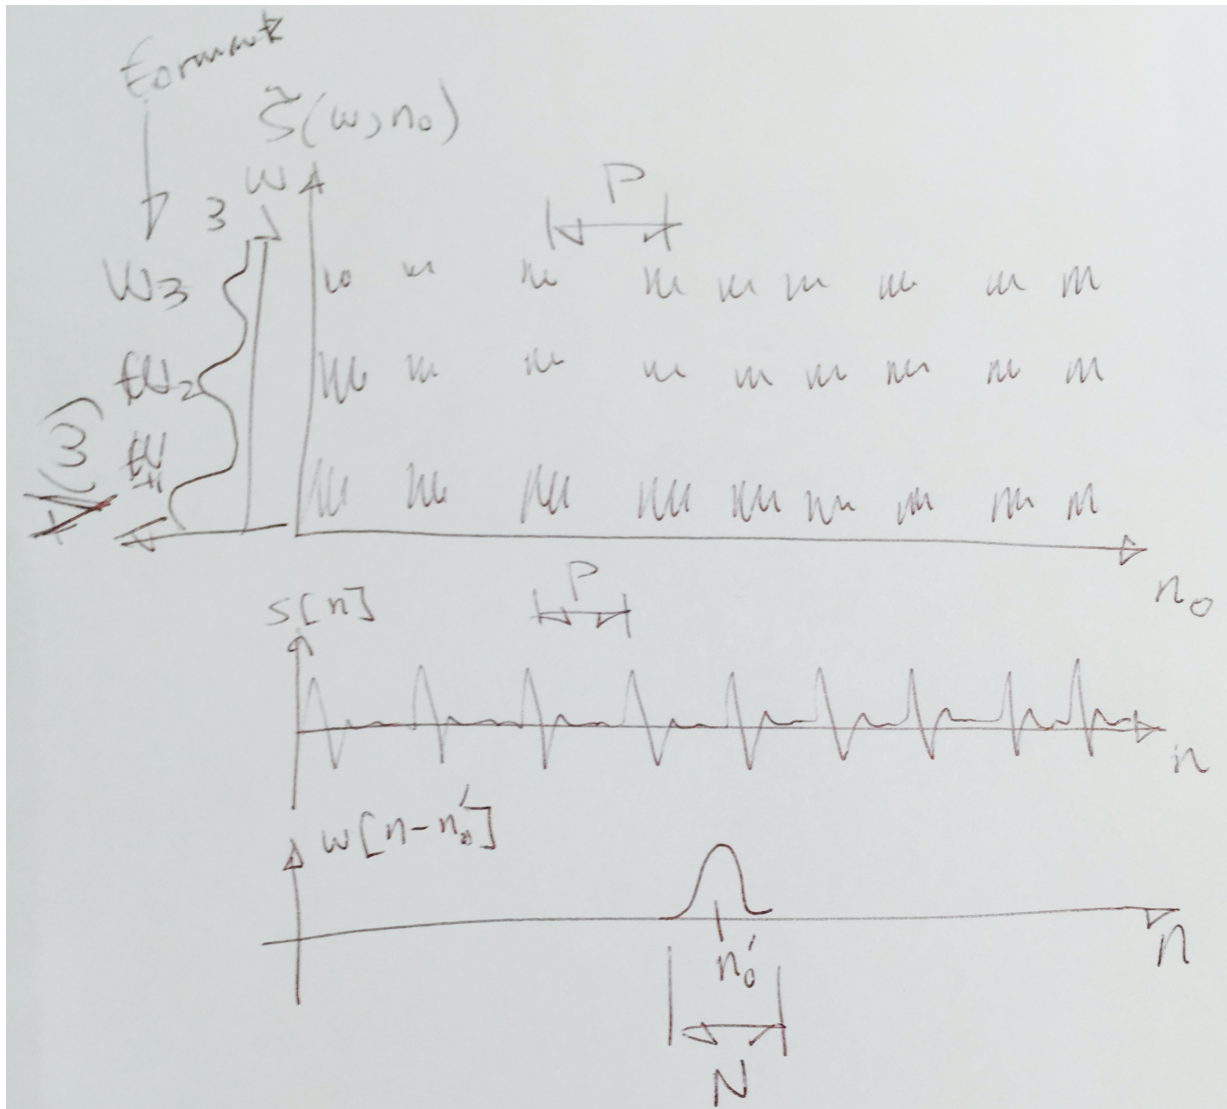 Formant
S̃(ω,n₀)
ω
P
3
ω3
ω2
P
n₀
s[n]
n
w[n-n₀′]
n₀′
n
N